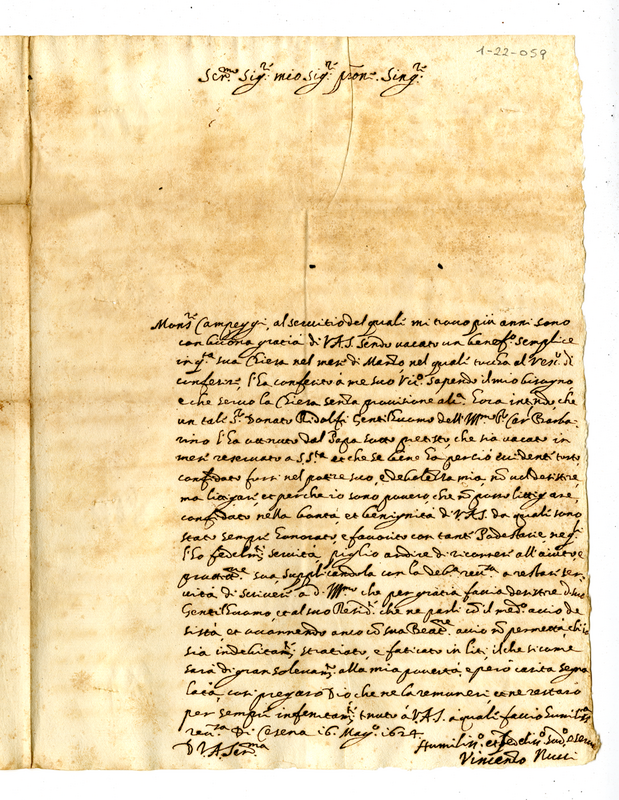 1-22-059
Ser.mo Sig.r mio Sig.r pron. Sing.r
Mons.r Campeggi, al servitio del quale mi trovo più anni sono
con buona gratia di V.A.S. sendo vacato un benef.o semplice
in q.ta sua Chiesa nel mese di Marzo nel quale tocca al Vesc.o di
conferire, l'ha conferito à me suo Vic.o sapendo il mio bisogno
e che servo la Chiesa senza provisione al.a hora intendo, che
un tale S.r Donato Ridolfi Gentilhuomo dell'Ill.mo S.r Car. Barba-
rino l'ha ottenuto dal Papa sotto pretesto, che sia vacato in
mese reservato a S.S.ta et che se bene ha perciò evidente torto,
confidato forse nel potere suo, e debolezza mia, nō vuol desistere
ma litigare, et perche io sono povero, che nō posso littigare,
confidato nella bontà, et benignità di V.A.S. da quale sono
stato sempre honorato e favorito con tante Podestarie ne gl'
fedeliss. servità, piglio ardire di ricorrere all'aiuto e
prott.ne sua supplicandola con la deb.a rev.za a restar ser-
vita di scrivere a d.o Ill.mo che per gratia faccia desistere d.o suo
Gentilhuomo, et al suo Resid.te che ne parli cō il med.o accio de
sista, et occorrendo anco cō sua Beat.ne accio nō permetta, ch'io
sia indebitam.te stratiato, e faticato in liti il che si come
sarà di gran solevam.to alla mia povertà, e però carità segna
lata, così pregarò Dio che ne la remuneri, et ne restarò
per sempre infinitam.te tenuto à V.A.S. a quale faccio humiliss.a
rev.za Di Cesena 16. Mag.o 1624
D. V. A. Ser.ma
Humiliss.o et fedeliss.o sud.o e serv.e
Vincenzo Nucci